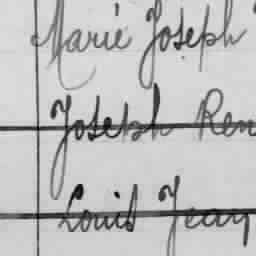 Marie Joseph
Joseph Ren
Louis Jean